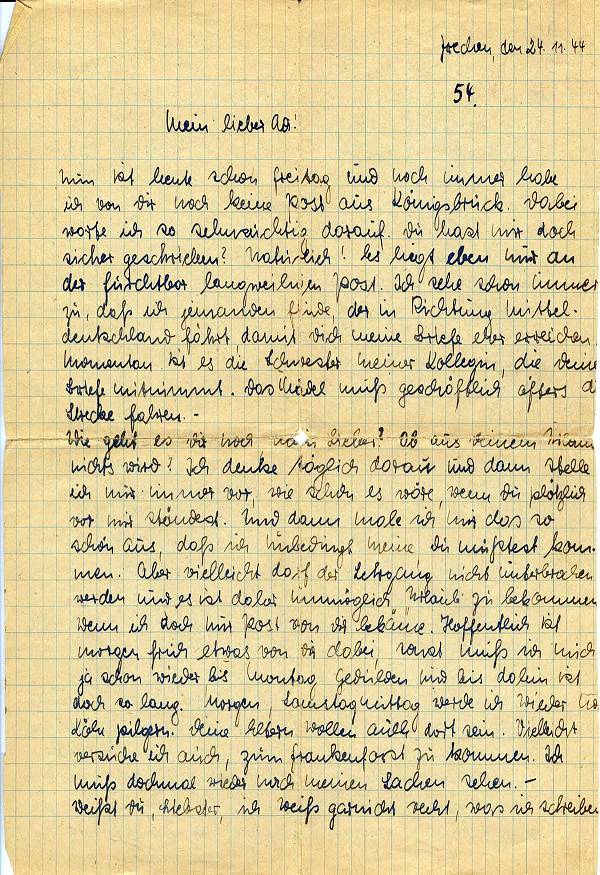 Frechen, den 24.11.44
54.
Mein lieber Adi!
Nun ist heute schon Freitag und noch immer habe
ich von Dir noch keine Post aus Königsbrück. Dabei
warte ich so sehnsüchtig darauf. Du hast mir doch
sicher geschrieben? Natürlich! Es liegt eben nur an
der furchtbar langweiligen Post. Ich sehe schon immer
zu, daß ich jemanden finde, der in Richtung Mittel-
deutschland fährt damit Dich meine Briefe eher erreichen.
Momentan ist es die Schwester meiner Kollegin, die deine
Briefe mitnimmt. Das Mädel muß geschäftlich öfters d
Strecke fahren. -
Wie geht es Dir noch mein Lieber? Ob aus Deinem
nichts wird? Ich denke täglich daran und dann stelle
ich mir immer vor, wie schön es wäre, wenn Du plötzlich
vor mir ständest. Und dann male ich mir das so
schön aus, daß ich unbedingt meine Du müßtest kom-
men. Aber vielleicht darf der Lehrgang nicht unterbrochen
werden und es ist daher unmöglich Urlaub zu bekommen
wenn ich doch nur Post von Dir bekäme. Hoffentlich ist
morgen früh etwas von Dir dabei, sonst muß ich mich
ja schon wieder bis Montag gedulden und bis dahin ist
doch so lang. Morgen, Samstagmittag werde ich wieder
Köln pilgern. Deine Eltern wollen auch dort sein. Vielleicht
versuche ich auch, zum Frankenforst zu kommen. Ich
muß dochmal wieder nach meinen Sachen sehen. -
Weißt Du, Liebster, ich weiß garnicht recht, was ich schreiben